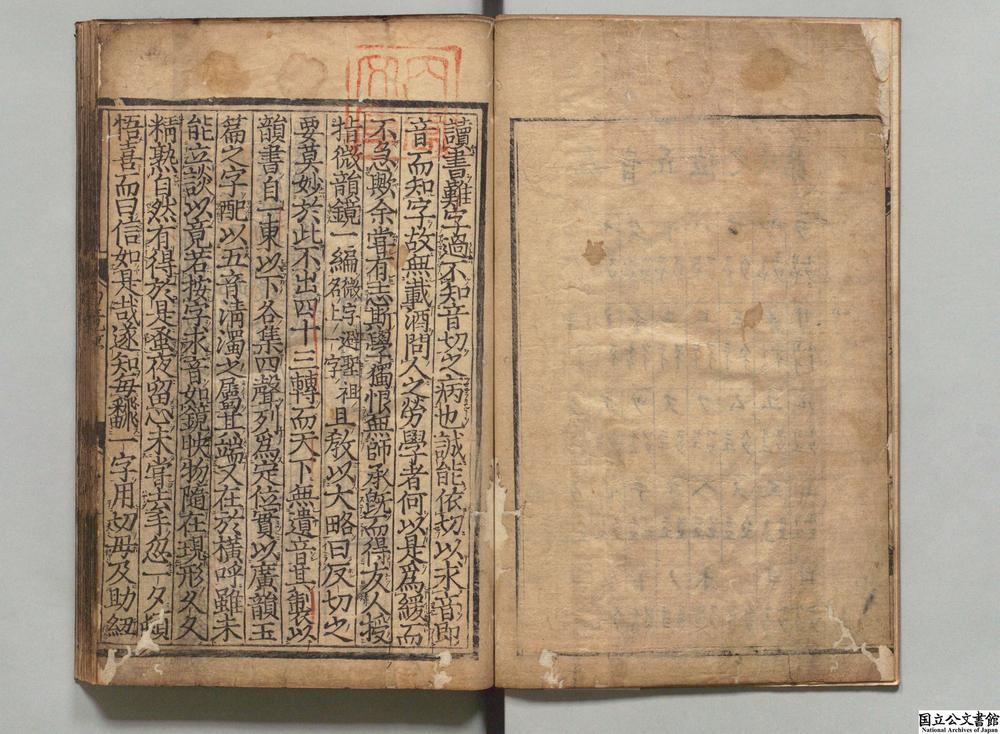 讀書難字過不知音切之病也誠能依切以求音即
音而知字故無載酒問人之勞學者何以是爲緩而
不急歟余嘗有志斯學獨恨無師承旣而得友人授
指微韻鏡一編微字避聖祖名上一字且敎以大略曰反切之
要莫妙於此不出四十三轉而天下無遺音其製以
韻書自一東以下各集四聲列爲定位實以廣韻玉
篇之字配以五音淸濁之屬其端又在於橫呼雖未
能立談以竟若按字求音如鏡映物隨在現形久久
精熟自然有得於是蚤夜留心未嘗去手忽一夕頓
悟喜而曰信如是哉遂知每飜一字用切母及助紐
国立公文書館
National Archives of Japan